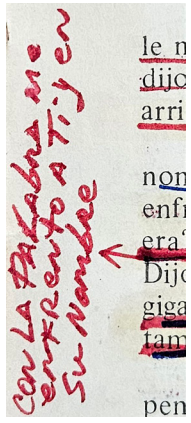 con LA PALAbRA me
enfRento A Ti y en
Su Nombre
le n
dijo
arri
non
enfr
era
Dijo
giga
tam
pen